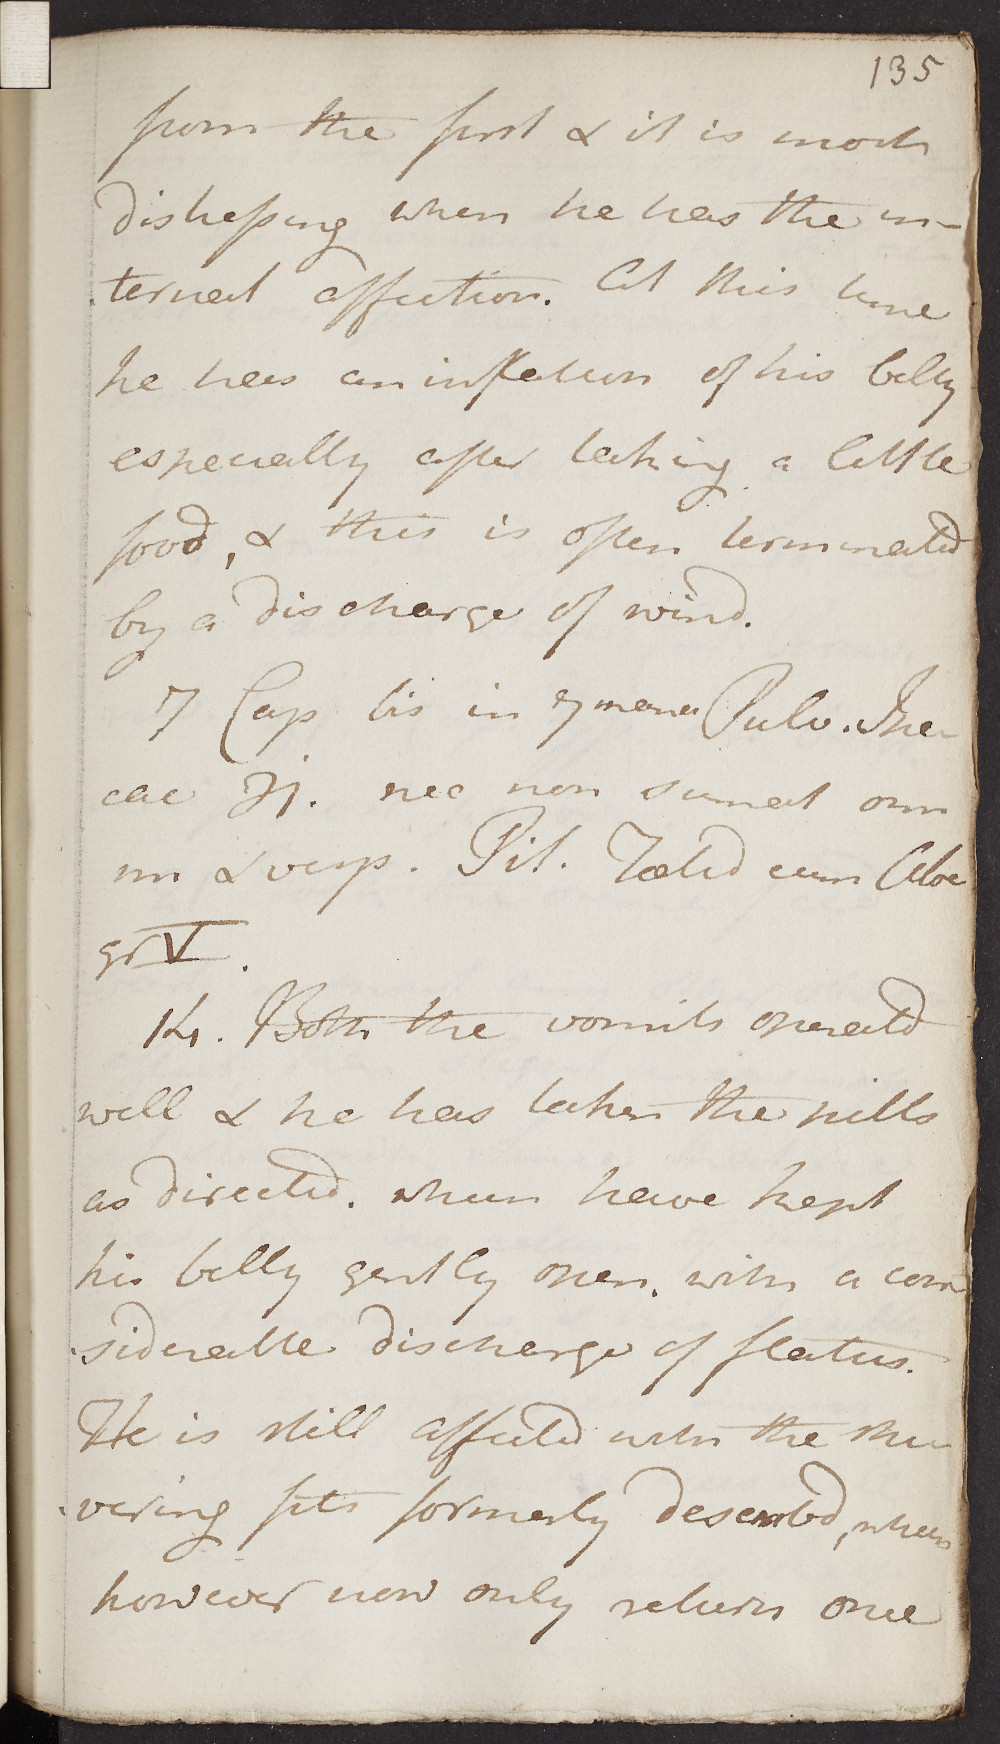 135
from the first & it is most
distressing when he has the in-
ternal affection. At this time
he has an inflation of his belly
especially after taking a little
food, & this is often terminated
by a discharge of wind.
7 Cap bis in Pulv. Ipe-
cac Ʒj. nec non sumat omn
m & vesp. Pil. Fœtid cum Aloe
gr V.
14. Both the vomits operated
well & he has taken the pills
as directed. which have kept
his belly gently open, with a con
siderable discharge of flatus.
He is still affected with the shi-
vering fits formerly described, which
however now only return once